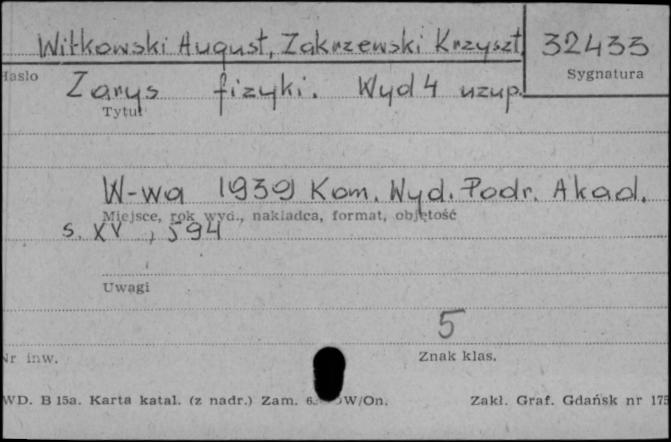 Witkowski August, Zakrzewski Krzyszt. 32433
Hasło Sygnatura
Zarys fizyki. Wyd 4 uzup.
Tytuł
W-wa 1939 Kom. Wyd. Podr. Akad.
Miejsce, rok wyd., nakładca, format, objętość
s. XV, 594
Uwagi
5
Nr inw. Znak klas.
WD. B 15a. Karta katal. (z nadr.) Zam. W/On. Zakł. Graf. Gdańsk nr 175